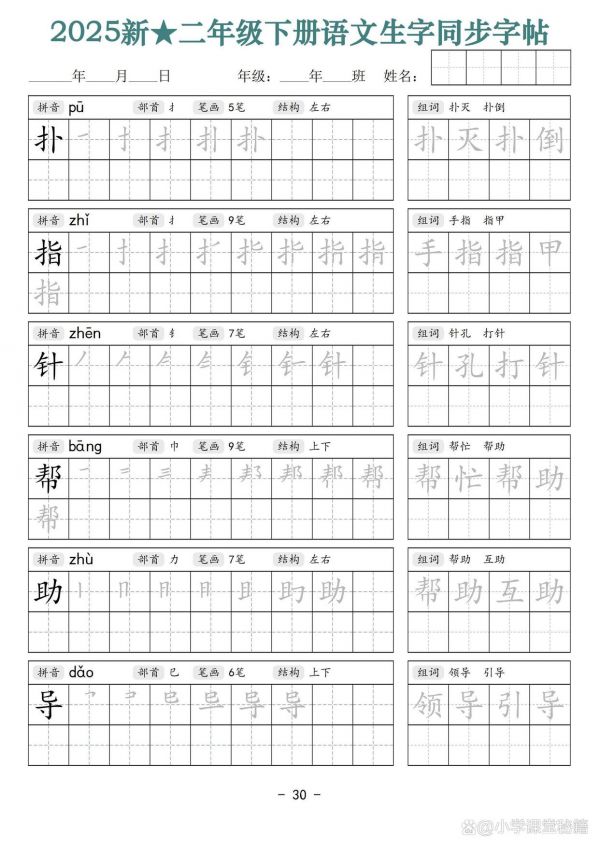 2025新★二年级下册语文生字同步字帖
____年____月____日 年级：____年____班 姓名：
拼音 pū 部首 扌 笔画 5笔 结构 左右 组词 扑灭 扑倒
扑 扑 扑灭扑倒
拼音 zhǐ 部首 扌 笔画 9笔 结构 左右 组词 手指 指甲
指 手指指甲
指
拼音 zhēn 部首 钅 笔画 7笔 结构 左右 组词 针孔 打针
针 针 针孔打针
拼音 bāng 部首 巾 笔画 9笔 结构 上下 组词 帮忙 帮助
帮 帮忙帮助
帮
拼音 zhù 部首 力 笔画 7笔 结构 左右 组词 帮助 互助
助 助 帮助互助
拼音 dǎo 部首 巳 笔画 6笔 结构 上下 组词 领导 引导
导 导 领导引导
- 30 -
@小学课堂秘籍